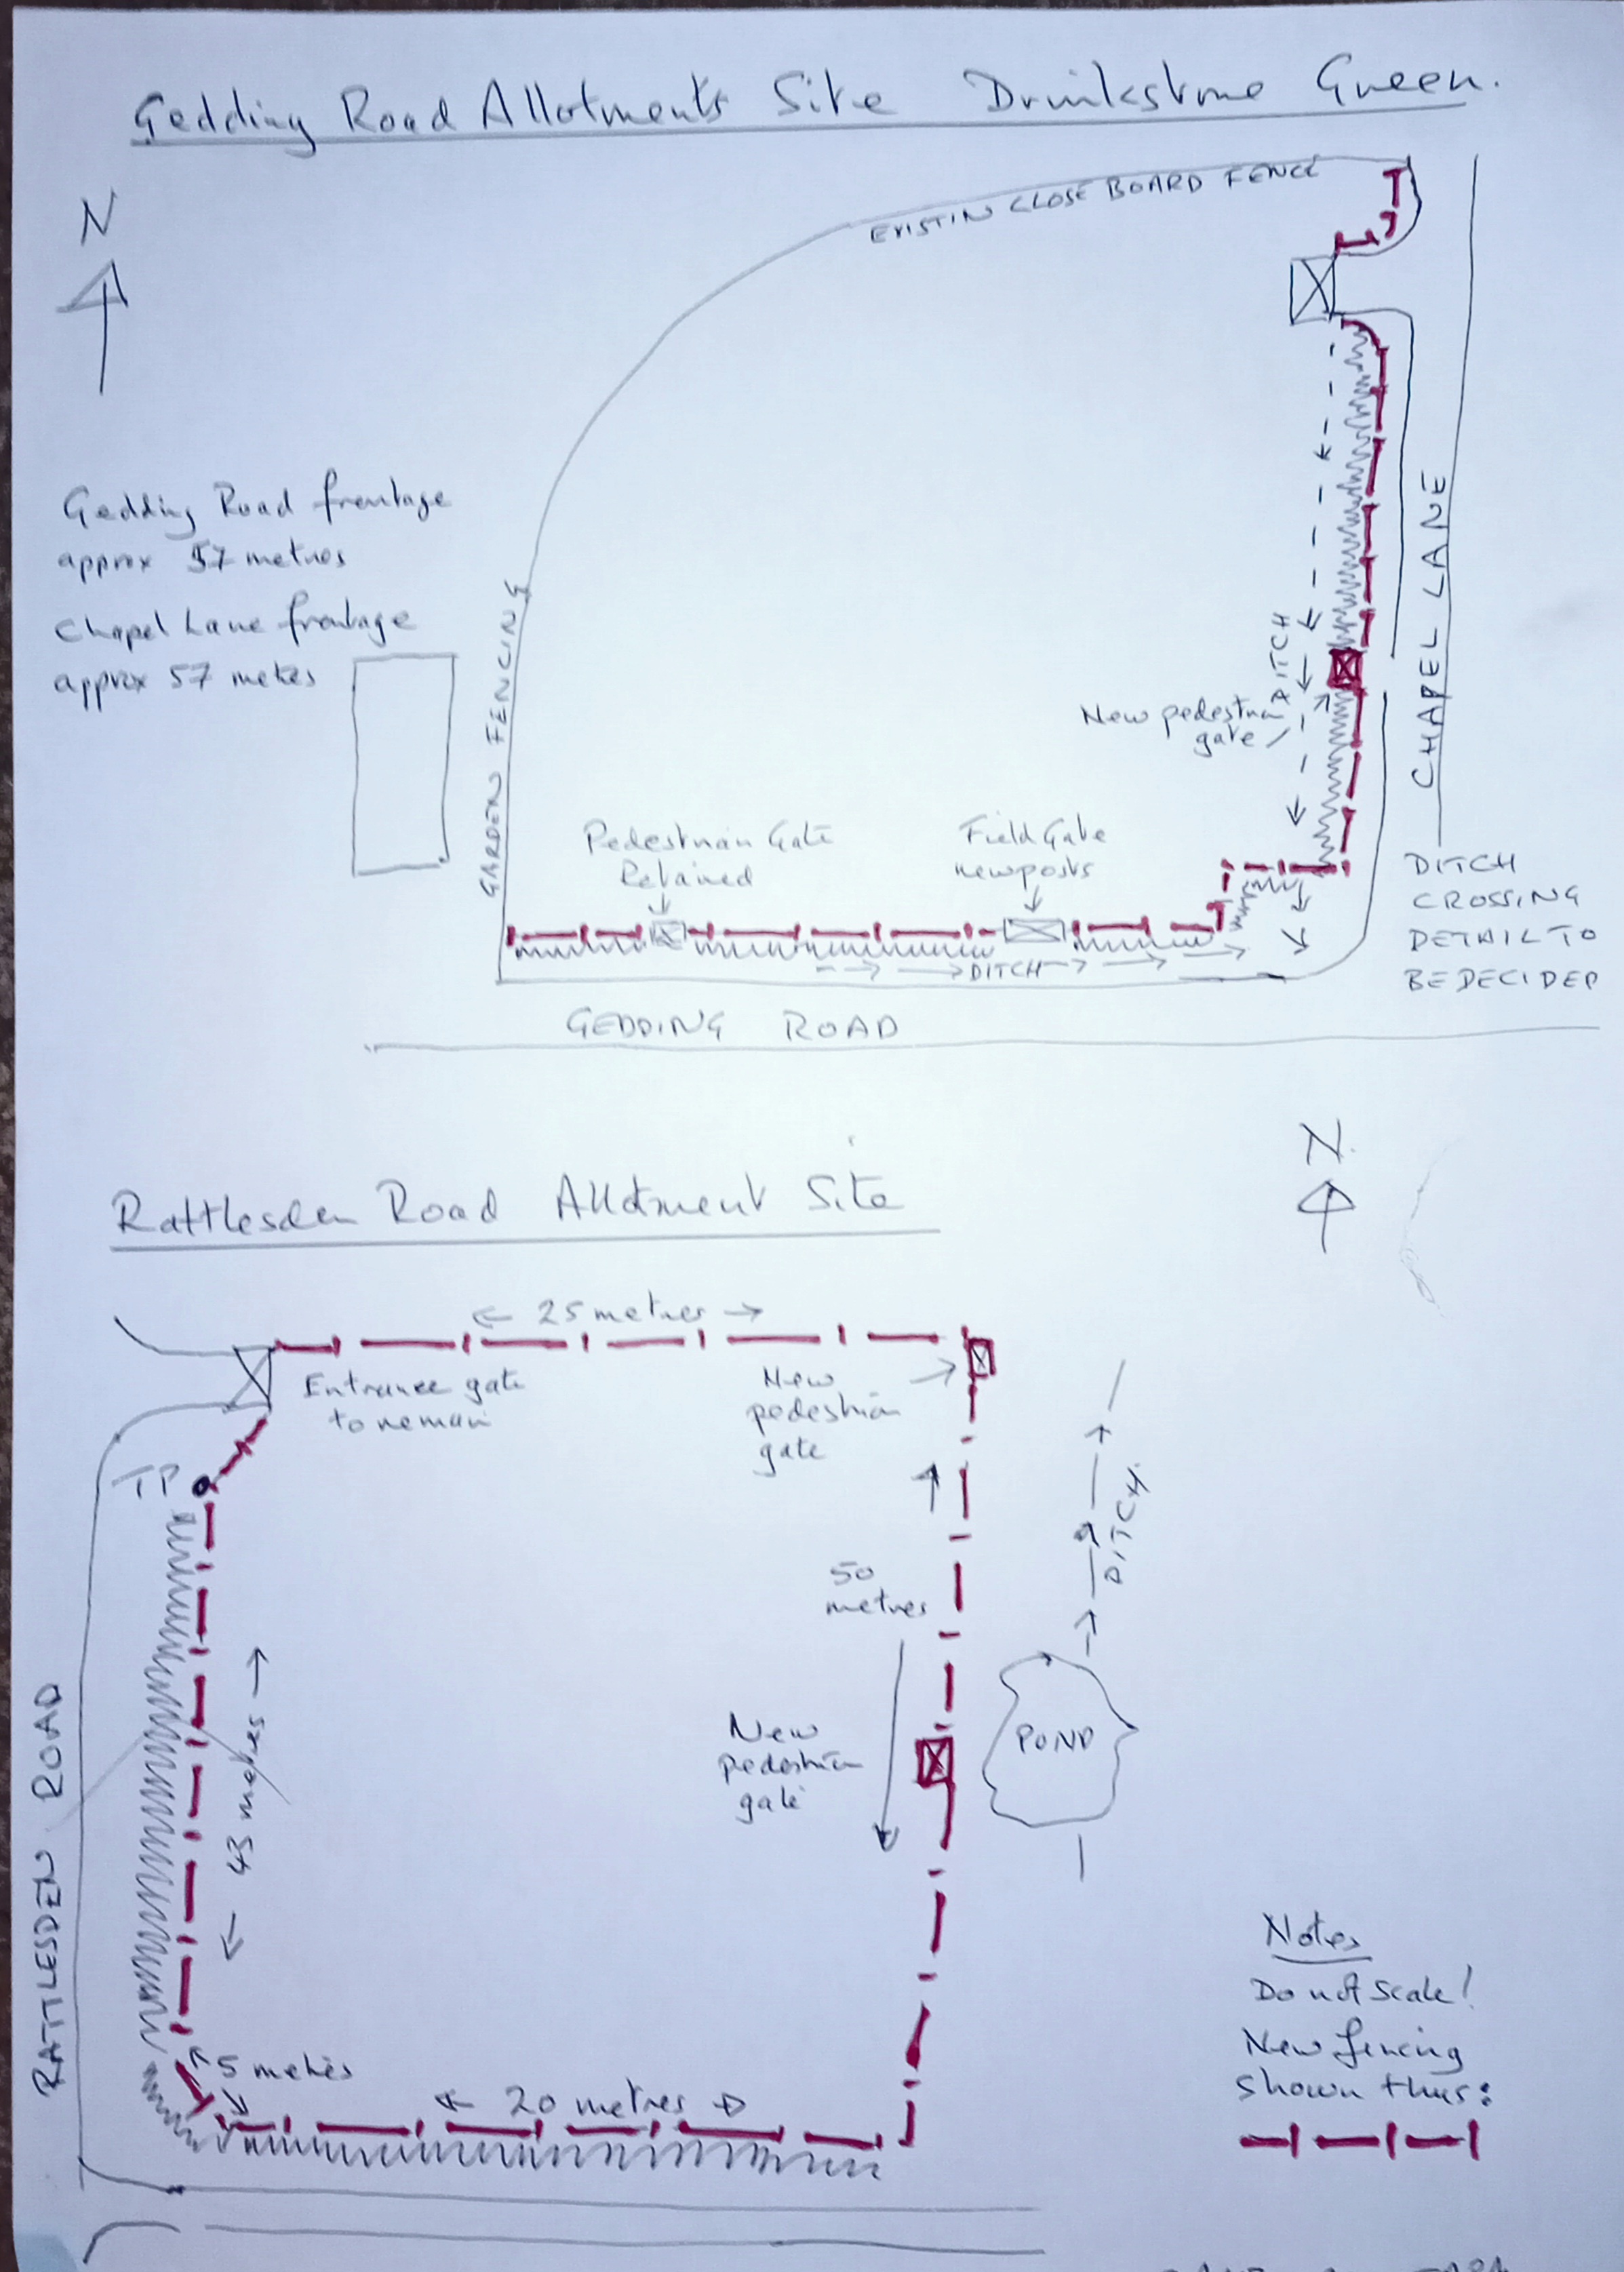 Gedding Road Allotments Site Drinkstone Green.
N
EXISTIN CLOSE BOARD FENCE
Gedding Road frontage
approx 57 metres
Chapel Lane frontage
approx 57 metres
GARDEN FENCING
CHAPEL LANE
DITCH
New pedestrian
gate
Pedestrian Gate
Retained
Field Gate
new posts
DITCH
CROSSING
DETAIL TO
BE DECIDED
DITCH
GEDDING ROAD
N
Rattlesden Road Allotment Site
25 metres
Entrance gate
to remain
New
pedestrian
gate
TP
DITCH
50
metres
43 metres
New
pedestrian
gate
POND
RATTLESDEN ROAD
5 metres
20 metres
Notes
Do not Scale!
New fencing
shown thus: